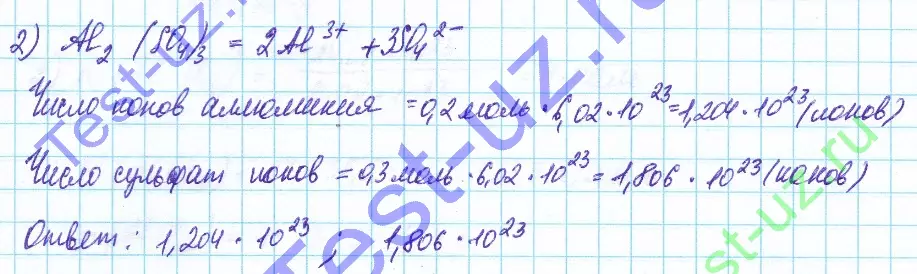 2) Al₂(SO₄)₃ = 2Al³⁺ + 3SO₄²⁻
Число ионов алюминия = 0,2 моль · 6,02 · 10²³ = 1,204 · 10²³ (ионов)
Число сульфат ионов = 0,3 моль · 6,02 · 10²³ = 1,806 · 10²³ (ионов)
Ответ: 1,204 · 10²³ ; 1,806 · 10²³
Test-uz.ru
Test-uz.ru
st-uz.ru